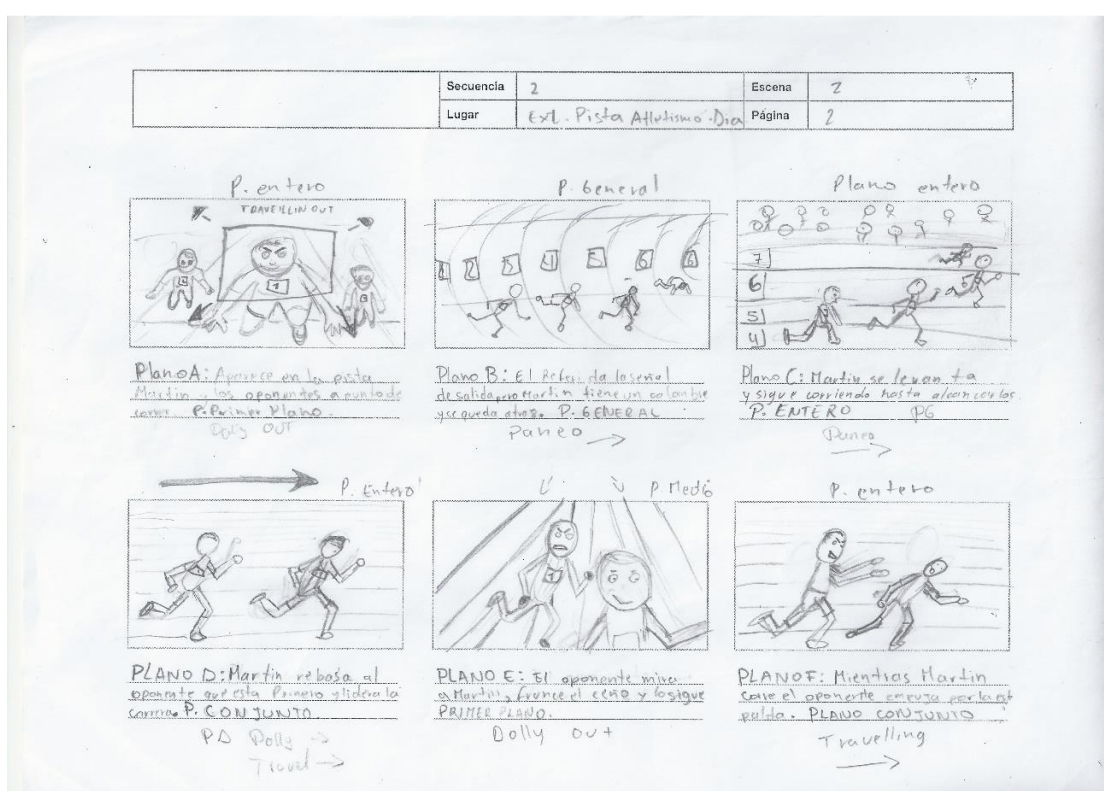 Secuencia 2 Escena 2
Lugar Ext. Pista Atletismo. Dia Página 2
P. entero
TRAVELLIN OUT
1
P. General
1 2 3 4 5 6 6
Plano entero
7
6
5
4
Plano A: Aparece en la pista
Martin, los oponentes a punto de
correr. P. Primer Plano.
Dolly OUT
Plano B: El Referi da la señal
de salida, pero Martin tiene un calambre
y se queda atras. P. GENERAL
Paneo
Plano C: Martin se levanta
y sigue corriendo hasta alcanzarlos.
P. ENTERO PG
Paneo
P. Entero
P. Medio
1
P. entero
PLANO D: Martin rebasa al
oponente que esta Primero y lidera la
carrera. P. CONJUNTO.
PD Dolly
Travel
PLANO E: El oponente mira
a Martin, frunce el ceño y lo sigue
PRIMER PLANO.
Dolly out
PLANO F: Mientras Martin
corre el oponente empuja por la es
palda. PLANO CONJUNTO
Travelling